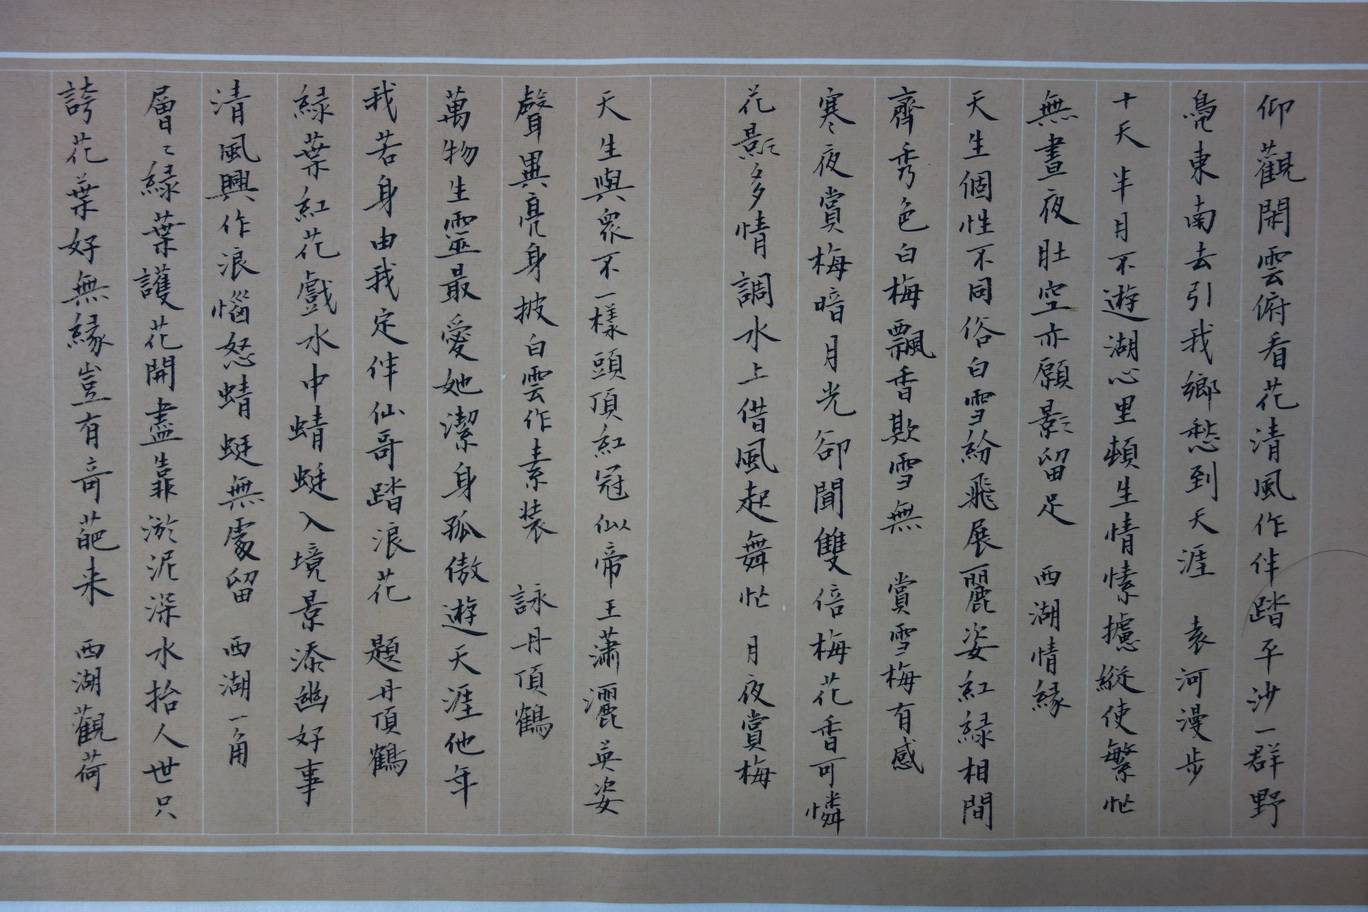 仰觀閑雲俯看花清風作伴踏平沙一群野
鳧東南去引我鄉愁到天涯 袁河漫步
十天半月不遊湖心里頓生情愫攄縱使繁忙
無晝夜肚空亦願影留足 西湖情緣
天生個性不同俗白雪紛飛展麗姿紅綠相間
齊秀色白梅飄香欺雪無 賞雪梅有感
寒夜賞梅暗月光卻聞雙倍梅花香可憐
花影多情調水上借風起舞忙 月夜賞梅
天生與眾不一樣頭頂紅冠似帝王蕭灑英姿
聲異亮身披白雲作素装 詠丹頂鶴
萬物生靈最愛她潔身孤傲遊天涯他年
我若身由我定伴仙哥踏浪花 題丹頂鶴
綠葉紅花戲水中蜻蜓入境景添幽好事
清風興作浪惱怒蜻蜓無處留 西湖一角
層〻綠葉護花開盡靠淤泥深水抬人世只
誇花葉好無緣豈有奇葩来 西湖觀荷